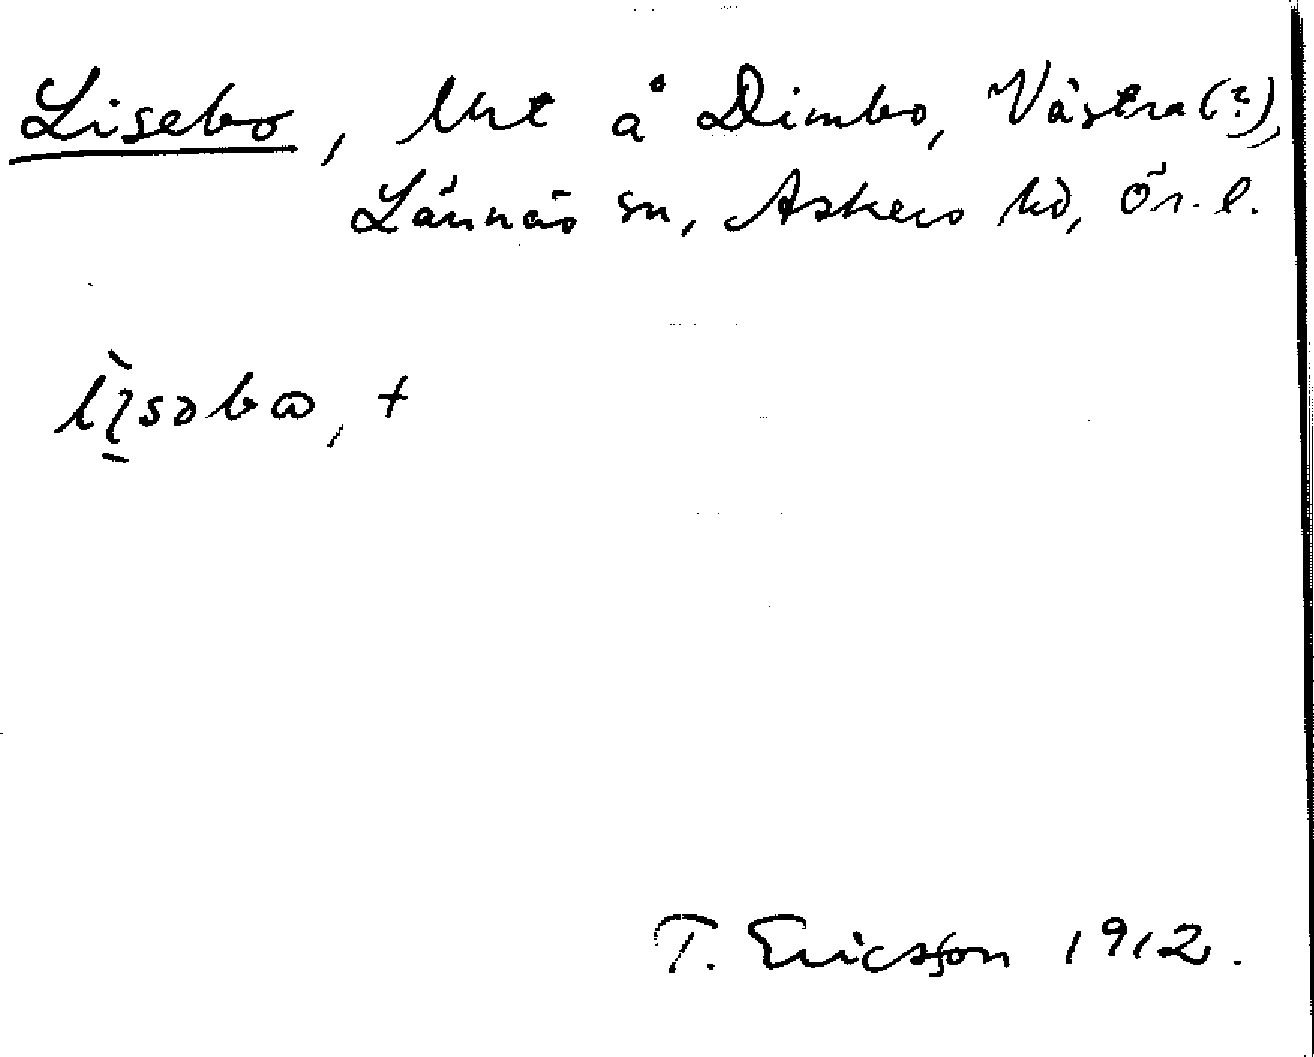 Lisebo, lht å Dimbo, Västra (?),
Lännäs sn, Askers hd, Ör. l.
T. Ericsson 1912.